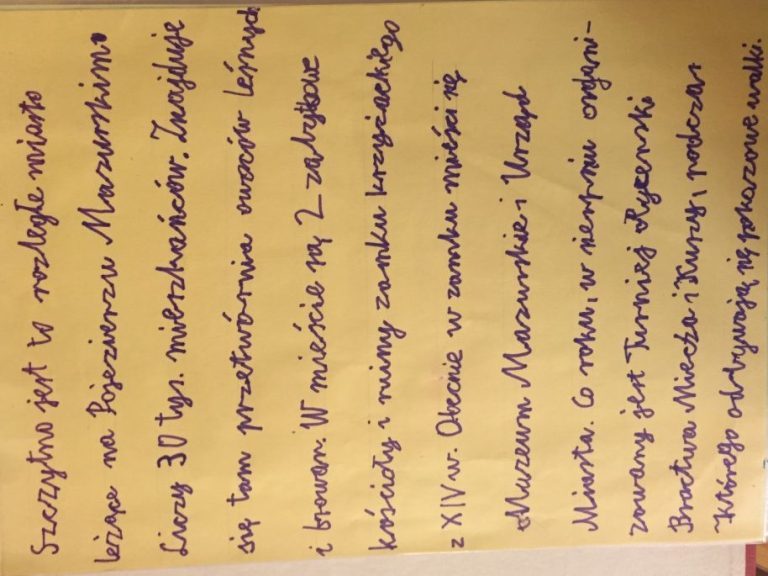 Szczytno jest to rozległe miasto
leżące na Pojezierzu Mazurskim.
Liczy 30 tys. mieszkańców. Znajduje
się tam przetwórnia owoców leśnych
i browar. W mieście są 2 zabytkowe
kościoły i ruiny zamku krzyżackiego
z XIV w. Obecnie w zamku mieści się
Muzeum Mazurskie i Urząd
Miasta. Co roku, w sierpniu organi-
zowany jest Turniej Rycerski
Bractwa Miecza i Kuszy, podczas
którego odbywają się pokazowe walki.